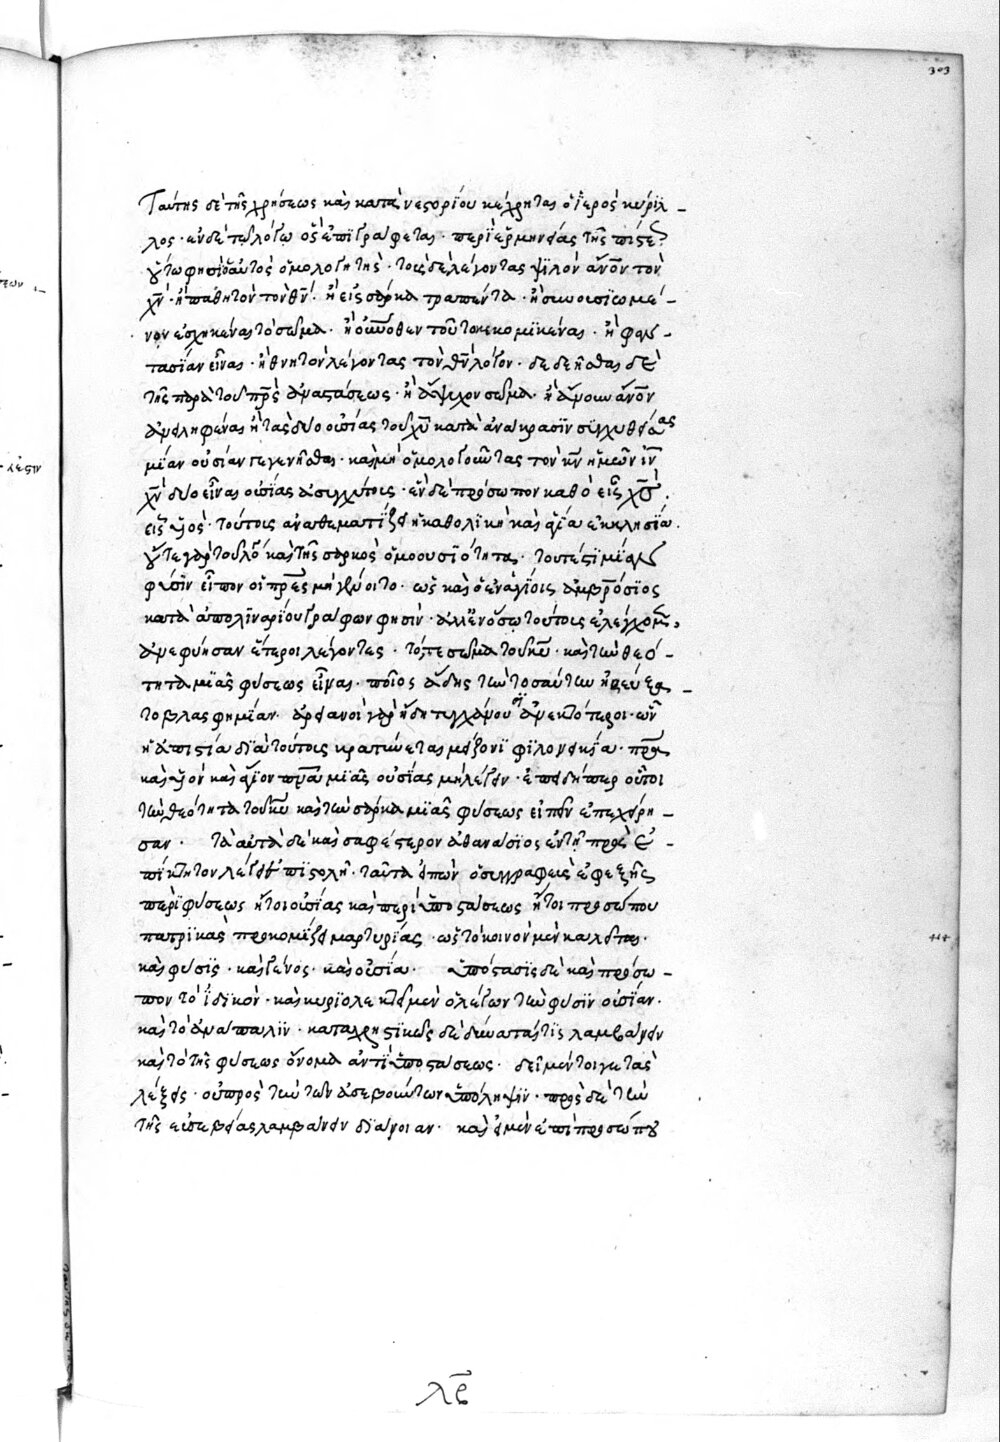 303
Ταύτης δὲ τῆς χρήσεως καὶ κατὰ νεστορίου κέχρηται ὁ ἱερὸς κύριλ-
λος · ἐν δὲ τῷ λόγῳ ὃς ἐπιγράφεται · περὶ ἑρμηνείας τῆς πίστε
οὕτω φησὶν ὁ αὐτὸς ὁμολογητής · τοὺς δὲ λέγοντας ψιλὸν ἄνον τὸν
χν · ἢ παθητὸν τὸν θν · ἢ εἰς σάρκα τραπέντα · ἢ συνουσιωμέ-
νον ἐσχηκέναι τὸ σῶμα · ἢ ἄνωθεν τοῦτο κεκομικέναι · ἢ φαν-
τασίαν εἶναι · ἢ θνητὸν λέγοντας τὸν θν λόγον · δεδεῆσθαι δὲ
τῆς παρὰ τοῦ πρς ἀναστάσεως · ἢ ἄψυχον σῶμα · ἢ ἄνουν ἄνον
ἀνειληφέναι ἢ τὰς δύο οὐσίας τοῦ χυ κατὰ ἀνάκρασιν συγχυθείσας
μίαν οὐσίαν γεγενῆσθαι · καὶ μὴ ὁμολογοῦντας τὸν κν ἡμῶν ιν
χν δύο εἶναι οὐσίας ἀσυγχύτους · ἓν δὲ πρόσωπον καθὸ εἷς χς
εἷς υἱός · τούτους ἀναθεματίζει ἡ καθολικὴ καὶ ἁγία ἐκκλησία ·
οὔτε γὰρ τοῦ λόγου καὶ τῆς σαρκὸς ὁμοουσιότητα · τουτέστι μίαν
φύσιν εἶπον οἱ πρες μὴ γένοιτο · ὡς καὶ ὁ ἐν ἁγίοις ἀμβρόσιος
κατὰ ἀπολιναρίου γράφων φησίν · ἀλλ' ἐν ὅσῳ τούτους ἐλέγχομεν,
ἀνεφύησαν ἕτεροι λέγοντες · τό, τε σῶμα τοῦ κυ · καὶ τὴν θεό-
τητα μιᾶς φύσεως εἶναι · ποῖος ᾅδης τὴν τοσαύτην ἠρεύξα-
το βλασφημίαν · ἀρειανοὶ γὰρ ἤδη τυγχάνουσιν ἀνεκτότεροι · ὧν
ἡ ἀπιστία διὰ τούτους κρατύνεται μείζονι φιλονεικία · πρα
καὶ υἱὸν καὶ ἅγιον πνα μιᾶς οὐσίας μὴ λέγειν · ἐπειδήπερ οὗτοι
τὴν θεότητα τοῦ κυ καὶ τὴν σάρκα μιᾶς φύσεως εἰπεῖν ἐπεχείρη-
σαν · Τὰ αὐτὰ δὲ καὶ σαφέστερον ἀθανάσιος ἐν τῇ πρὸς ἐ-
πίκτητον λέγει ἐπιστολῇ · ταῦτα εἰπὼν ὁ συγγραφεὺς ἐφεξῆς
περὶ φύσεως ἤτοι οὐσίας καὶ περὶ ὑποστάσεως ἤτοι προσώπου
πατρικὰς προκομίζει μαρτυρίας · ὡς τὸ κοινὸν μὲν καλεῖται ·
καὶ φύσις · καὶ γένος · καὶ οὐσία · ὑπόστασις δὲ καὶ πρόσω-
πον τὸ ἰδικόν · καὶ κυριολεκτεῖ μὲν ὁ λέγων τὴν φύσιν οὐσίαν ·
καὶ τὸ ἀνάπαλιν · καταχρηστικῶς δὲ δύναταί τις λαμβάνειν
καὶ τὸ τῆς φύσεως ὄνομα ἀντὶ ὑποστάσεως · δεῖ μέντοι γε τὰς
λέξεις · οὐ πρὸς τὴν τῶν ἀσεβούντων ὑπόληψιν · πρὸς δὲ τὴν
τῆς εὐσεβείας λαμβάνειν διάνοιαν · καὶ εἰ μὲν ἐπὶ προσώπου